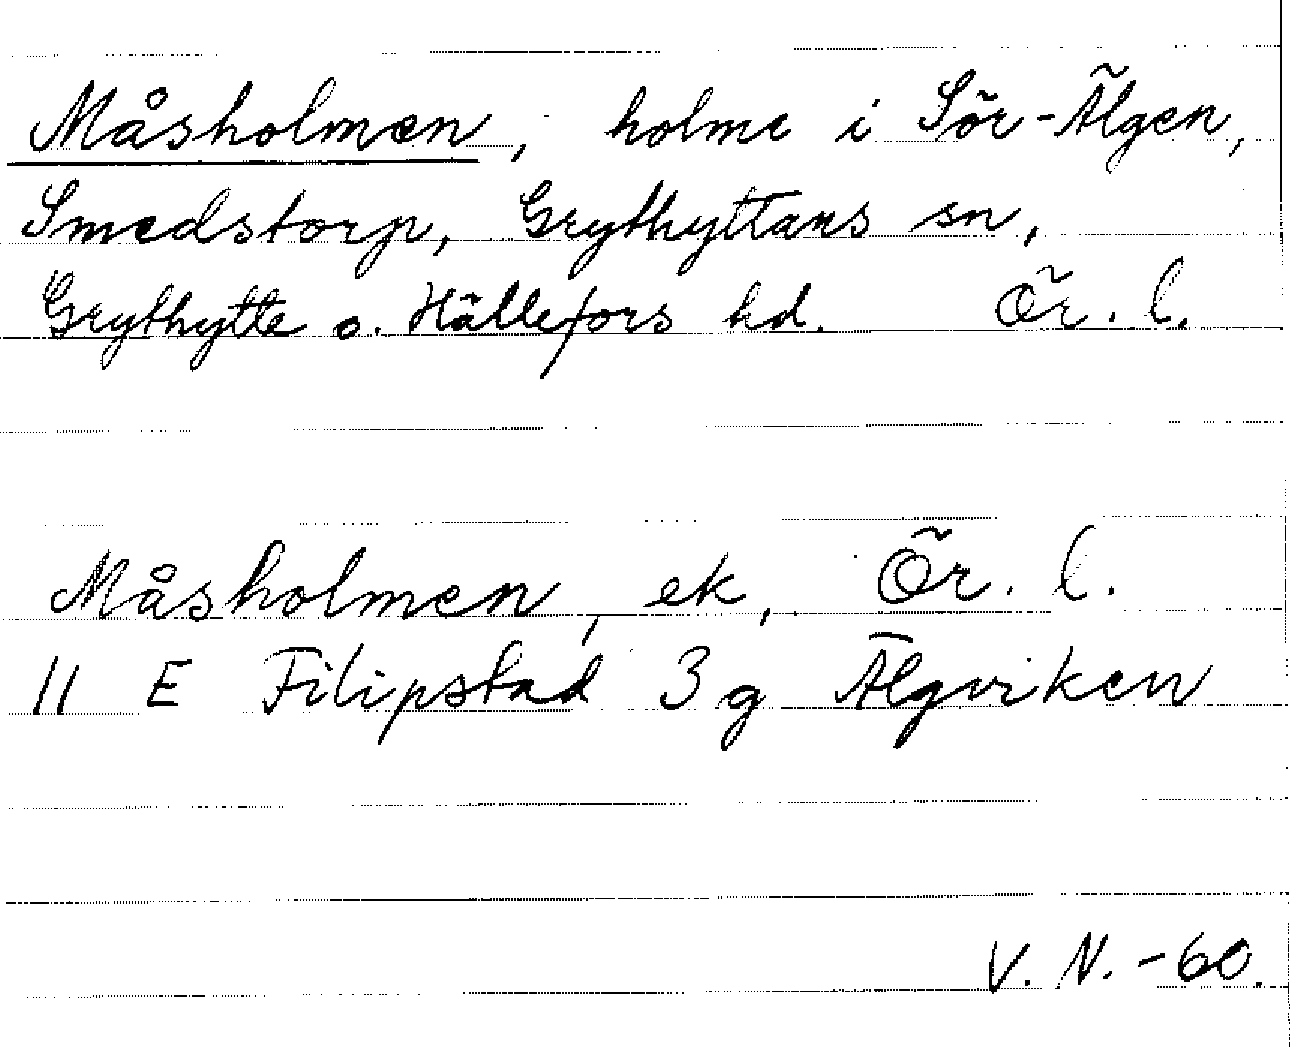 Måsholmen, holme i Sör-Älgen,
Smedstorp, Grythyttans sn,
Grythytte o. Hällefors hd. Ör. l.
Måsholmen, ek, Ör. l.
11 E Filipstad 3 g Älgviken
V. N. -60.